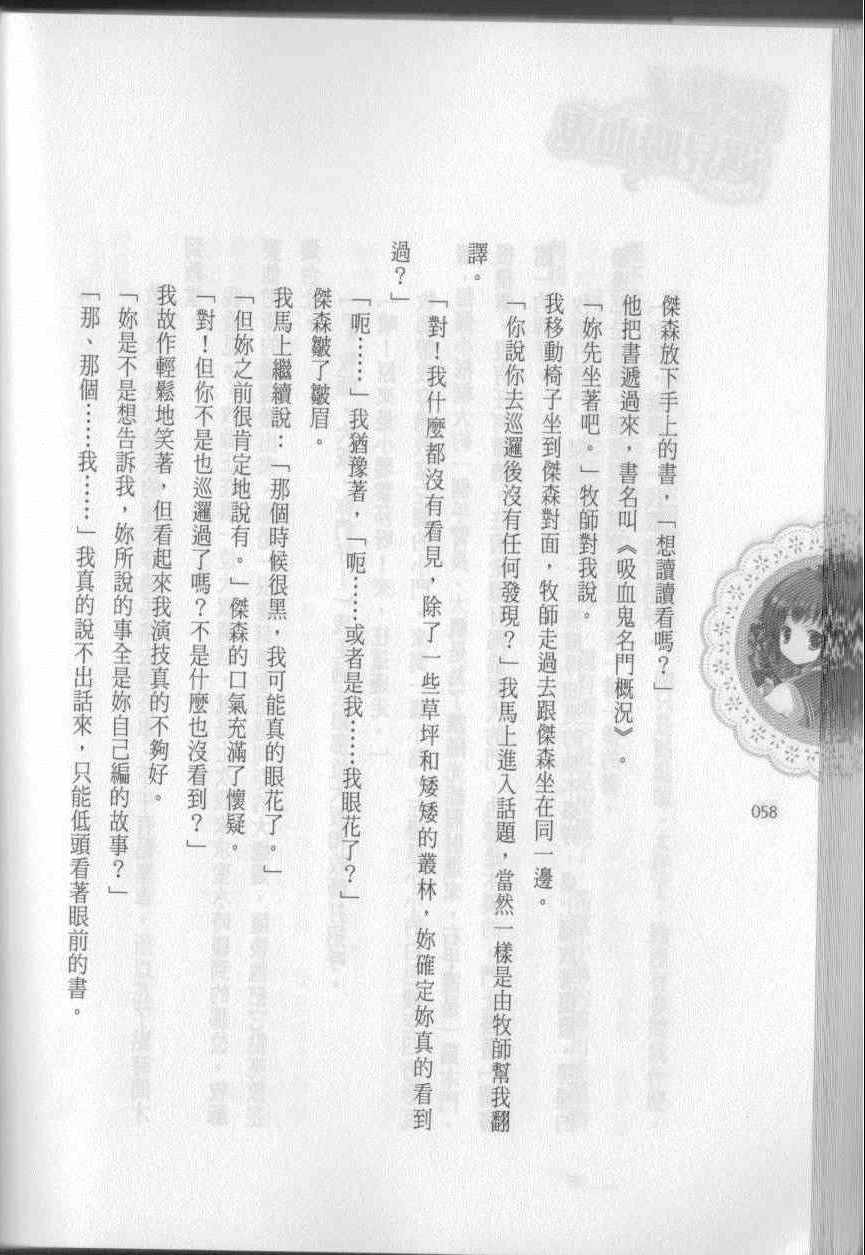 傑森放下手上的書，「想讀讀看嗎？」
他把書遞過來，書名叫《吸血鬼名門概況》。
「妳先坐著吧。」牧師對我說。
我移動椅子坐到傑森對面，牧師走過去跟傑森坐在同一邊。
「你說你去巡邏後沒有任何發現？」我馬上進入話題，當然一樣是由牧師幫我翻
譯。
「對！我什麼都沒有看見，除了一些草坪和矮矮的叢林，妳確定妳真的看到
過？」
「呃……」我猶豫著，「呃……或者是我……我眼花了？」
傑森皺了皺眉。
我馬上繼續說：「那個時候很黑，我可能真的眼花了。」
「但妳之前很肯定地說有。」傑森的口氣充滿了懷疑。
「對！但你不是也巡邏過了嗎？不是什麼也沒看到？」
我故作輕鬆地笑著，但看起來我演技真的不夠好。
「妳是不是想告訴我，妳所說的事全是妳自己編的故事？」
「那、那個……我……」我真的說不出話來，只能低頭看著眼前的書。
058